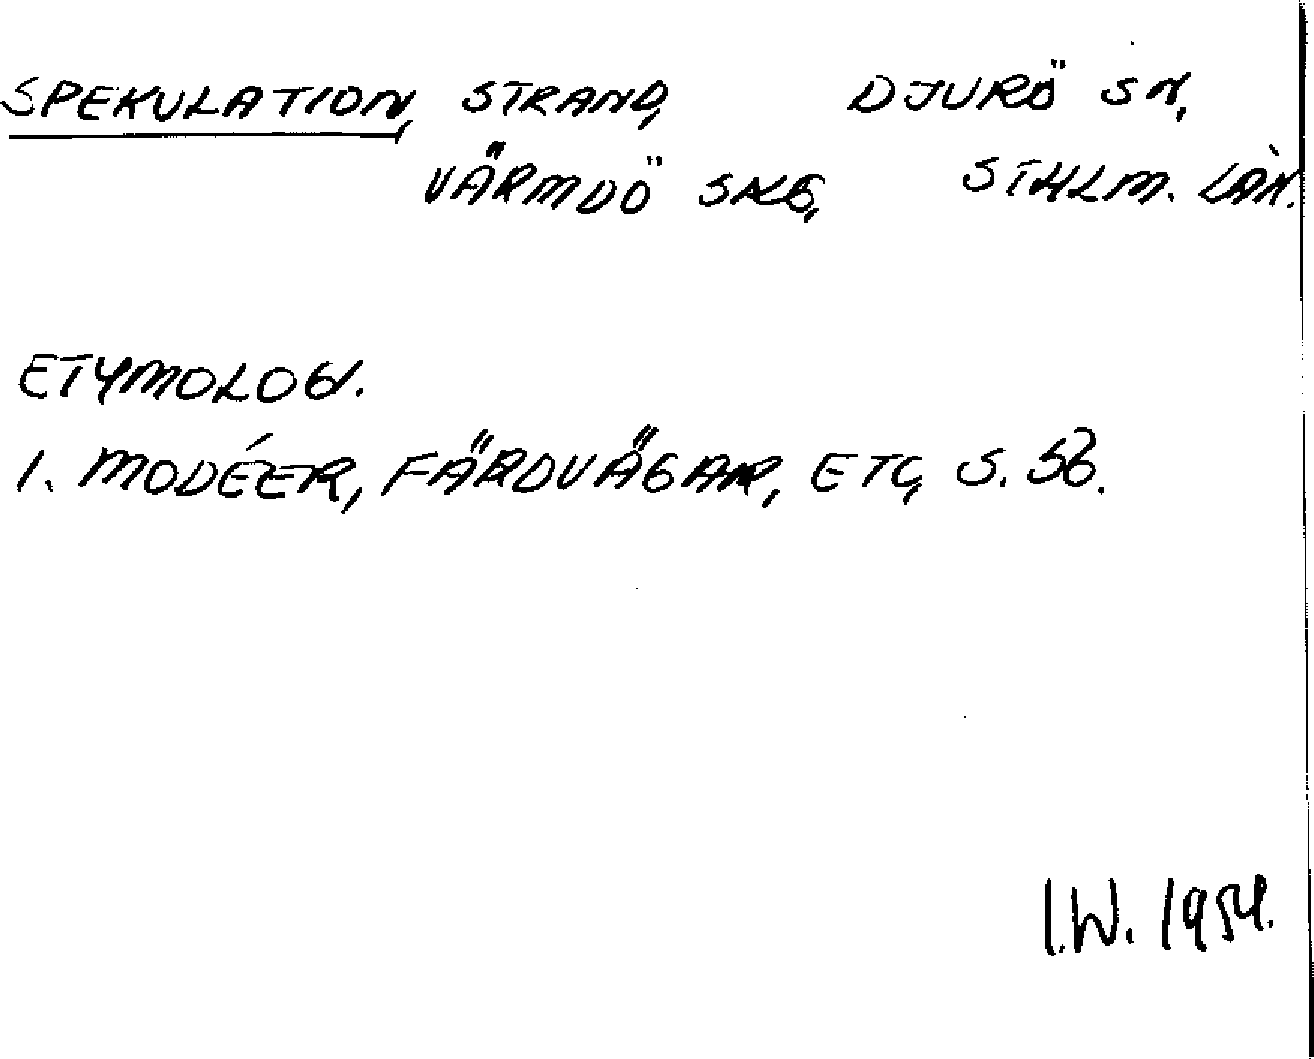 SPEKULATION, STRAND, DJURÖ SN,
VÄRMDÖ SKG, STHLM. LÄN.
ETYMOLOGI.
1. MODÉER, FÄRDVÄGAR, ETC, S. 56.
I.W. 1954.